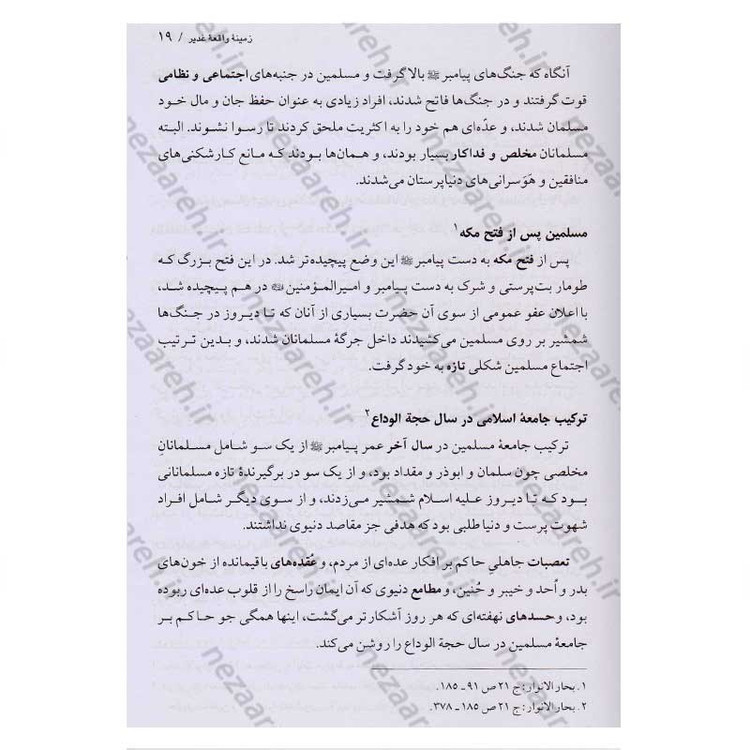 زمینهٔ واقعهٔ غدیر / ۱۹
آنگاه که جنگ‌های پیامبر ﷺ بالا گرفت و مسلمین در جنبه‌های اجتماعی و نظامی
قوت گرفتند و در جنگ‌ها فاتح شدند، افراد زیادی به عنوان حفظ جان و مال خود
مسلمان شدند، و عدّه‌ای هم خود را به اکثریت ملحق کردند تا رسوا نشوند. البته
مسلمانان مخلص و فداکار بسیار بودند، و همان‌ها بودند که مانع کارشکنی‌های
منافقین و هَوَسرانی‌های دنیاپرستان می‌شدند.
مسلمین پس از فتح مکه۱
پس از فتح مکه به دست پیامبر ﷺ این وضع پیچیده‌تر شد. در این فتح بزرگ که
طومار بت‌پرستی و شرک به دست پیامبر و امیرالمؤمنین در هم پیچیده شد،
با اعلان عفو عمومی از سوی آن حضرت بسیاری از آنان که تا دیروز در جنگ‌ها
شمشیر بر روی مسلمین می‌کشیدند داخل جرگهٔ مسلمانان شدند، و بدین ترتیب
اجتماع مسلمین شکلی تازه به خود گرفت.
ترکیب جامعهٔ اسلامی در سال حجة الوداع۲
ترکیب جامعهٔ مسلمین در سال آخر عمر پیامبر ﷺ از یک سو شامل مسلمانانِ
مخلصی چون سلمان و ابوذر و مقداد بود، و از یک سو در برگیرندهٔ تازه مسلمانانی
بود که تا دیروز علیه اسلام شمشیر می‌زدند، و از سوی دیگر شامل افراد
شهوت پرست و دنیا طلبی بود که هدفی جز مقاصد دنیوی نداشتند.
تعصبات جاهلیِ حاکم بر افکار عده‌ای از مردم، و عُقده‌های باقیمانده از خون‌های
بدر و اُحد و خیبر و حُنین، و مطامع دنیوی که آن ایمان راسخ را از قلوب عده‌ای ربوده
بود، و حسدهای نهفته‌ای که هر روز آشکارتر می‌گشت، اینها همگی جو حاکم بر
جامعهٔ مسلمین در سال حجة الوداع را روشن می‌کند.
۱. بحار الانوار: ج ۲۱ ص ۹۱ ـ ۱۸۵.
۲. بحار الانوار: ج ۲۱ ص ۱۸۵ ـ ۳۷۸.
nezaareh.ir